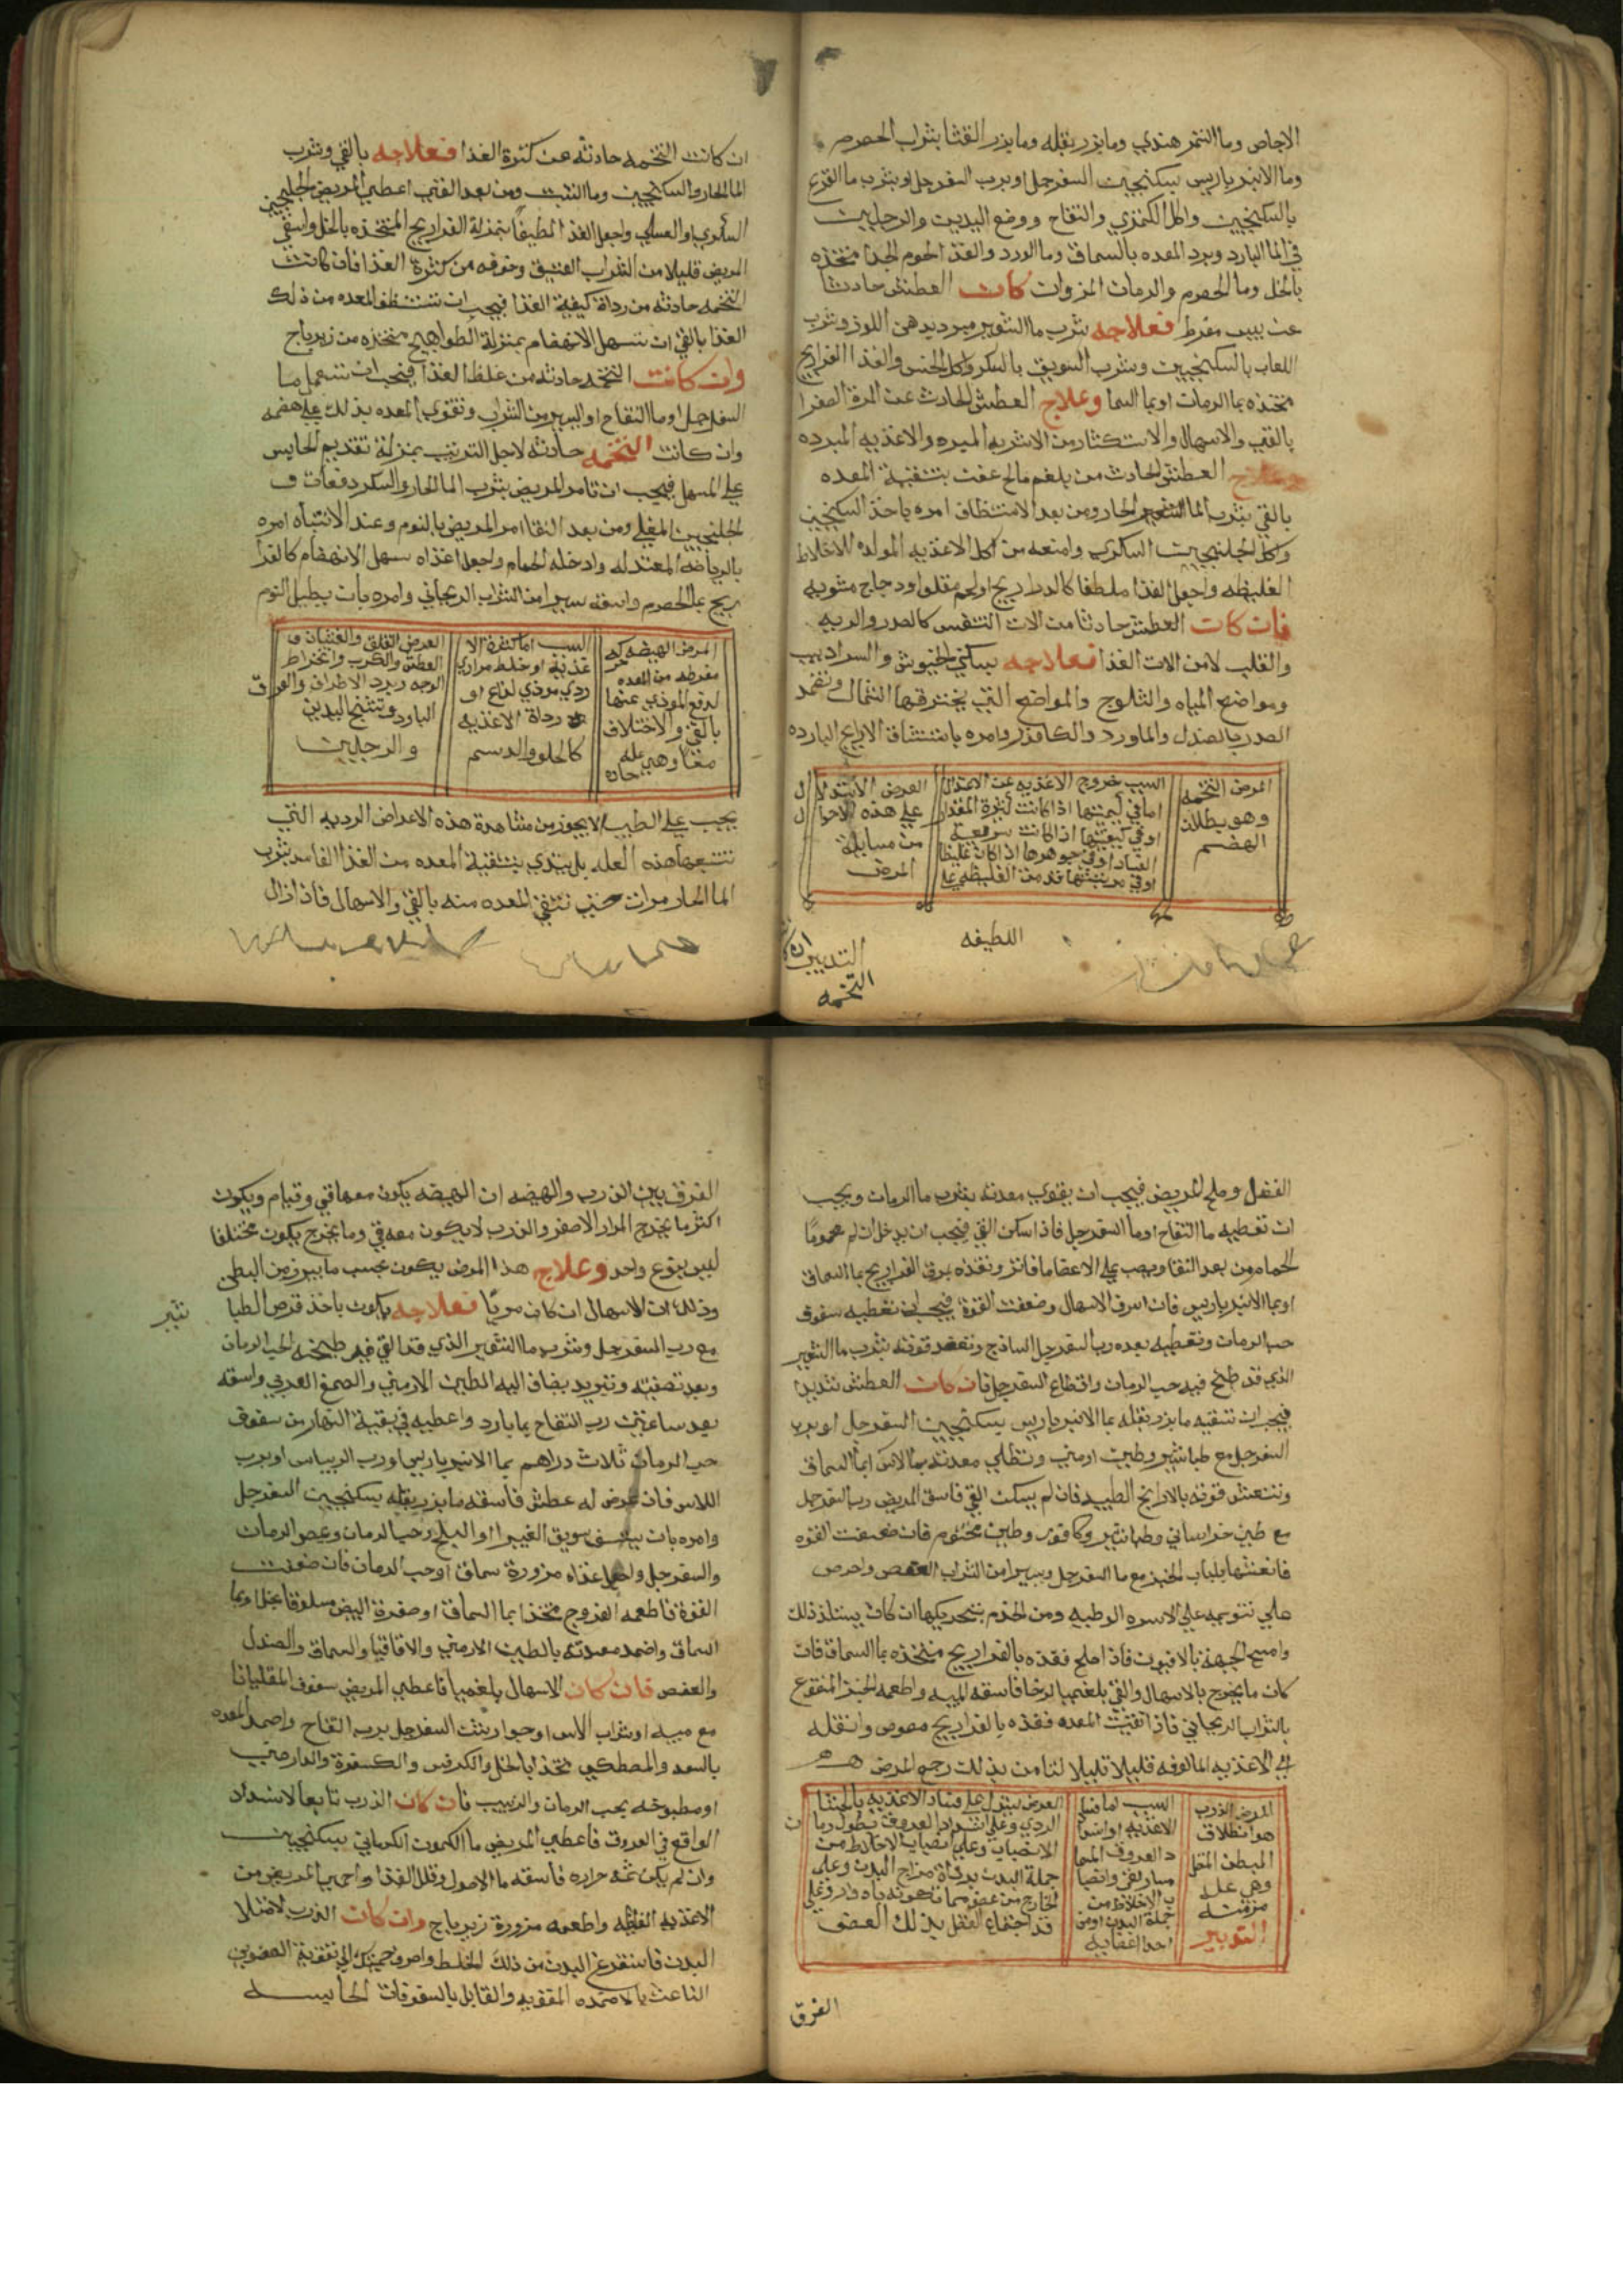 الاجاص وما التمر هندي وما بزر بقله وما بزر القثا بشراب الحصرم
وما الانبرباريس بسكنجبين السفرجل او برب السفرجل او بشرب ما القرع
بالسكنجبين واكل الكمثري والتفاح ووضع اليدين والرجلين
في الما البارد وبرد المعده بالسماق وما الورد والغذا لحوم الجدا متخذه
بالخل وما الحصرم والرمان المزوان كان العطش حادثا
عن يبس مفرط فعلاجه بشرب ما الشعير مبرد بدهن اللوز وشرب
اللعاب بالسكنجبين وبشرب السويق بالسكر واكل الخس والغذا الفراريج
متخذه بما الرمان او بما السما وعلاج العطش الحادث عن المرة الصفرا
بالقي والاسهال والاستكثار من الاشربه المبرده والاغذيه المبرده
وعلاج العطش الحادث من بلغم مالح عفن بتنقية المعده
بالقي بشرب الما الحار ومن بعد الاستنظاف امره ياخذ السكنجبين
واكل الجلنجبين السكري وامنعه من اكل الاغذيه المولده للاخلاط
الغليظه واجعل الغذا ملطفا كالدراريج او لحم مقلو او دجاج مشويه
فان كان العطش حادثا من الات التنفس كالصدر والريه
والقلب لا من الات الغذا فعلاجه بسكني الخيوش والسراديب
ومواضع المياه والثلوج والمواضع التي يخترقها الشمال وتضمد
الصدر بالصندل والماورد والكافور وامره باستنشاق الاراييح البارده
المرض التخمه
وهو بطلان
الهضم
السبب خروج الاغذيه عن الاعتدال
اما في كميتها اذا كانت كثيرة المقدار
او في كيفيتها اذا كانت سريعة
الفساد او في جوهرها اذا كان غليظا
او في مرتبتها قدم من الغليظه علي
العرض الاستدلال
علي هذه الاحوال
من مسايلة
المرض
اللطيفه
التدبير ان كا
التخمه
ان كانت التخمه حادثه عن كثرة الغذا فعلاجه بالقي وشرب
الما الحار والسكنجبين وما الشبث ومن بعد القي اعطي المريض الجلنجبين
السكري او العسلي واجعل الغذا لطيفا بمنزلة الفراريج المتخذه بالخل واسقي
المريض قليلا من الشراب العتيق وخوفه من كثرة الغذا فان كانت
التخمه حادثه من رداة كيفية الغذا فيجب ان تستنظف المعده من ذلك
الغذا بالقي ان تسهل الانهضام بمنزلة الطواهيج متخذه من زيرباج
وان كانت التخمه حادثه من غلظ الغذا فيجب ان تستعمل ما
السفرجل او ما التفاح او اليسير من الشراب وتقوي المعده بذلك علي هضمه
وان كانت التخمه حادثه لاجل الترتيب بمنزلة تقديم الحابس
علي المسهل فيجب ان تامر المريض بشرب الما الحار والسكر دفعات و
الجلنجبين المغلي ومن بعد النقا امر المريض بالنوم وعند الانتباه امره
بالرياضه المعتدله وادخله الحمام واجعل اغذاه سهل الانهضام كالفرا
ريج بما الحصرم واسقه يسيرا من الشراب الريحاني وامره بان يطيل النوم
المرض الهيضه حركه
مفرطه من المعده
لدفع الموذي عنها
بالقي والاختلاف
معا وهي عله
حاده
السبب اما كثرة الا
غذيه او خلط مراري
ردي موذي لذاع او
رداة الاغذيه
كالحلو والدسم
العرض القلق والغثيان و
العطش والكرب وانخراط
الوجه وبرد الاطراف والعرق
البارد وتشنج اليدين
والرجلين
يجب علي الطبيب لا يجوز من مشاهدة هذه الاعراض الرديه التي
تتبعها هذه العله بل يبتدي بتنقية المعده من الغذا الفاسد بشرب
الما الحار مرات حتي تنقي المعده منه بالقي والاسهال فاذا زال
الفضل وصلح المريض فيجب ان يقوي معدته بشرب ما الرمان ويجب
ان تعطيه ما التفاح او ما السفرجل فاذا سكن القي فيجب ان يدخل ان لم محموما
الحمام ومن بعد النقا ويصب علي الاعضا ما فاتر وتغذه بمرق الفراريج بما السماق
او بما الانبرباريس فان اسرف الاسهال وضعفت القوة فيجب ان تعطيه سفوف
حب الرمان وتعطيه بعده رب السفرجل الساذج وتعضد قوته بشرب ما الشعير
الذي قد طبخ فيه حب الرمان واقطاع السفرجل فان كان العطش شديدا
فيجب ان تسقيه ما بزر بقله بما الانبرباريس بسكنجبين السفرجل او برب
السفرجل مع طباشير وطين ارمني وتطلي معدته بما الاس او بما السماق
وتنعش قوته بالاراييح الطيبه فان لم يسكن القي فاسق المريض رب السفرجل
مع طين خراساني وطباشير وكافور وطين مختوم فان ضعفت القوه
فانعشها بلباب الخبز مع ما السفرجل ويسيرا من الشراب العفص واحرص
علي تنويمه علي الاسره الوطيه ومن الحدم بتحريكها ان كان يستلذ ذلك
وامسح الجبهة بالافيون فاذا اصلح فغذه بالفراريج متخذه بما السماق فان
كان ما يخرج بالاسهال والقي بلغميا لزجا فاسقه الميبه واطعمه الخبز المنقوع
بالشراب الريحاني فاذا نقيت المعده فغذه بالفراريج مصوص وانقله
الي الاغذيه المالوفه قليلا قليلا لتامن بذلك رجع المرض
المرض الذرب
هو انطلاق
البطن المتصل
وهي عله
مزمنه
التدبير
السبب اما فساد
الاغذيه او انسدا
د العروق المسما
ساريقي وانصبا
ب الاخلاط من
جملة البدن او من
احد اعضايه
العرض يستدل علي فساد الاغذيه بالجشا
الردي وعلي انسداد العروق بطول زمان
الانصباب وعلي انصباب الاخلاط من
جملة البدن برداة مزاج البدن وعلي
قد اجتماع الفضل بذلك العضو
الفرق
الفرق بين الذرب والهيضه ان الهيضه يكون معها قي وقيام ويكون
اكثر ما يخرج المرار الاصفر والذرب لا يكون معه قي وما يخرج يكون مختلفا
ليس بنوع واحد وعلاج هذا المرض يكون بحسب ما يبرز من البطن
وذلك ان الاسهال ان كان مريا فعلاجه يكون باخذ قرص الطبا
شير
مع رب السفرجل وشرب ما الشعير الذي قد القي فيه طبخه الحب الرمان
وبعد تصفيته وتبريده يضاف اليه الطين الارمني والصمغ العربي واسقه
بعد ساعتين رب التفاح بما بارد واعطيه في بقية النهار من سفوف
حب الرمان ثلاث دراهم بما الانبرباريس او رب الريباس او برب
اللاس فان عرض له عطش فاسقه ما بزر بقله بسكنجبين السفرجل
وامره بان يستف سويق الغبيرا او البلح وحب الرمان ومص الرمان
والسفرجل واجعل اغذاه مزورة سماق او حب الرمان فان ضعفت
القوة فاطعمه الفروج متخذا بما السماق او صفرة البيض مسلوقا بخل او بما
السماق واضمد معدته بالطين الارمني والاقاقيا والسماق والصندل
والعفص فان كان الاسهال بلغميا فاعطي المريض سفوف المقلياثا
مع ميبه او شراب الاس او جوارشن السفرجل برب التفاح واضمد المعده
بالسعد والمصطكي متخذا بالخل والكرفس والكسفرة والدارصيني
او مطبوخه بحب الرمان والزبيب فان كان الذرب تابعا لانسداد
الواقع في العروق فاعطي المريض ما الكمون الكرماني بسكنجبين
وان لم يكن ثمه حراره فاسقه ما الاصول وقلل الغذا واحمي المريض من
الاغذيه الغليظه واطعمه مزورة زيرباج وان كان الذرب لامتلا
البدن فاستفرغ البدن من ذلك الخلط واصرف همتك الي تقوية العضوين
الباعث بالاضمده المقويه والقابل بالسفوفات الحابسه